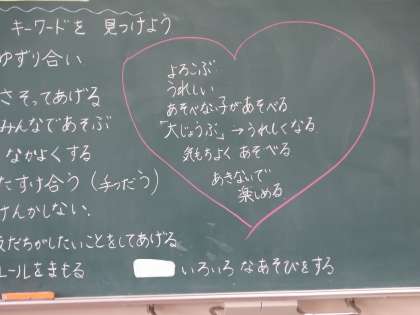 キーワードを 見つけよう
ゆずり合い
さそってあげる
みんなであそぶ
なかよくする
たすけ合う(手つだう)
けんかしない.
友だちがしたいことをしてあげる
ルールをまもる
いろいろなあそびをする
よろこぶ
うれしい
あそべない子があそべる
「大じょうぶ」→うれしくなる
気もちよく あそべる
あきないで
楽しめる